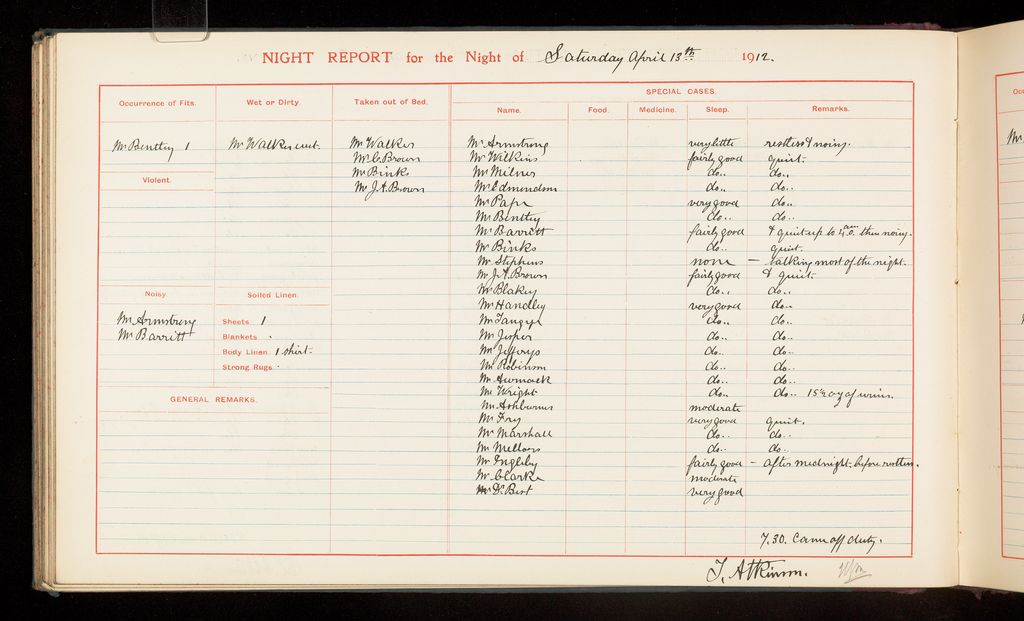 NIGHT REPORT for the Night of Saturday April 13th 1912.
Occurrence of Fits.
Mr Benttey 1
Violent.
Noisy
Mr Armstrong
Mr Barritt
Wet or Dirty.
Mr Walker wet.
Soiled Linen.
Sheets 1
Blankets .
Body Linen 1 shirt.
Strong Rugs .
GENERAL REMARKS.
Taken out of Bed.
Mr Walker
Mr C. Brown
Mr Binks
Mr J.A. Brown
SPECIAL CASES.
Name. Food. Medicine. Sleep. Remarks.
Mr Armstrong very little restless & noisy.
Mr Wilkins fairly good quiet.
Mr Milner do.. do..
Mr Edmondson do.. do..
Mr Pape very good do..
Mr Benttey do.. do..
Mr Barritt fairly good & quiet up to 4 am. then noisy.
Mr Binks do.. quiet.
Mr Stephens none – talking most of the night.
Mr J.A. Brown fairly good & quiet.
Mr Blakey do.. do..
Mr Handley very good do..
Mr Tangye do.. do..
Mr Jesper do.. do..
Mr Jefferys do.. do..
Mr Robinson do.. do..
Mr do.. do..
Mr Wright do.. do.. 15½ oz of urine.
Mr Ashburner moderate
Mr Fry very good quiet.
Mr Marshall do.. do..
Mr Mellors do.. do..
Mr Ingleby fairly good – after midnight. before restless.
Mr Clarke moderate
Mr D. Best very good
7.30. Came off duty.
T. Atkinson.